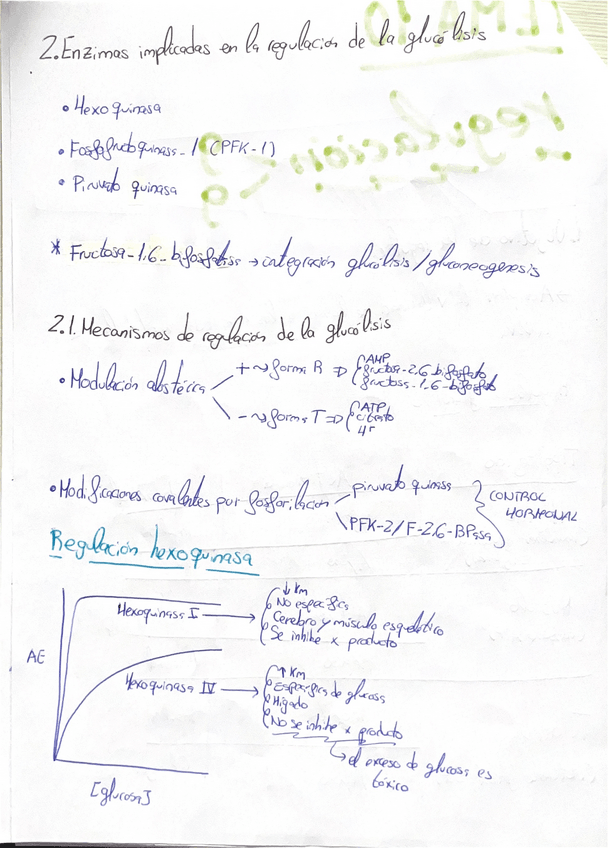 2. Enzimas implicadas en la regulación de la glucólisis
• Hexoquinasa
• Fosfofructoquinasa-1 (PFK-1)
• Piruvato quinasa
* Fructosa-1,6-bifosfatasa → integración glucólisis/gluconeogenesis
2.1. Mecanismos de regulación de la glucólisis
• Modulación alostérica
+ → forma R ⇒ { AMP
fructosa-2,6-bifosfato
fructosa-1,6-bifosfato
- → forma T ⇒ { ATP
citrato
H⁺
• Modificaciones covalentes por fosforilación
piruvato quinasa
PFK-2/F-2,6-BPasa
} CONTROL HORMONAL
Regulación hexoquinasa
AE
Hexoquinasa I → { ↓ Km
No específica
Cerebro y músculo esquelético
Se inhibe x producto
Hexoquinasa IV → { ↑ Km
Específica de glucosa
Hígado
No se inhibe x producto
↳ el exceso de glucosa es
tóxico
[glucosa]